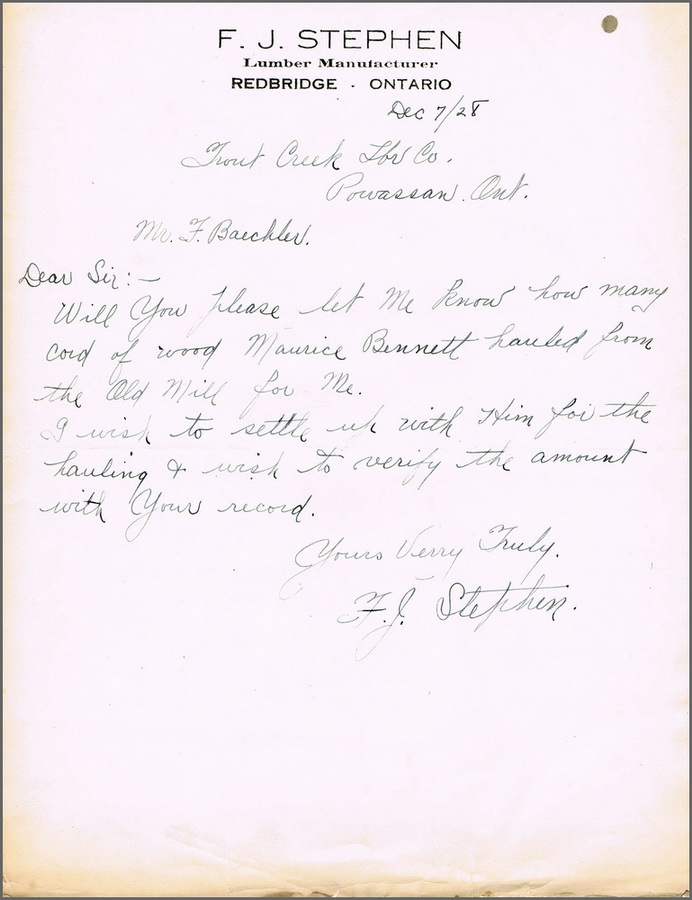 F. J. STEPHEN
Lumber Manufacturer
REDBRIDGE - ONTARIO
Dec 7/28
Trout Creek Lbr Co.
Powassan. Ont.
Mr. F. Baechler.
Dear Sir:—
Will You please let Me know how many
cord of wood Maurice Bennett hauled from
the Old Mill for Me.
I wish to settle up with Him for the
hauling & wish to verify the amount
with Your record.
Yours Verry Truly.
F.J. Stephen.